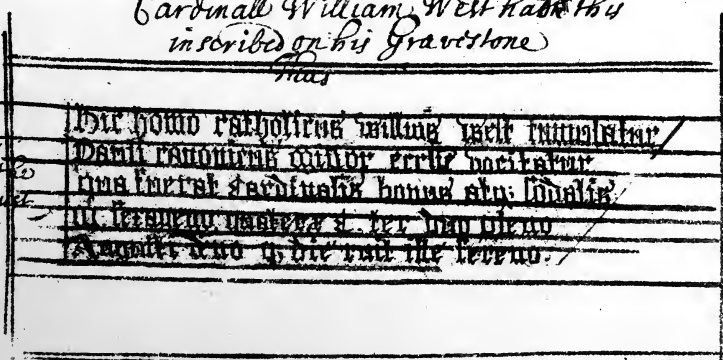 Cardinall William West hath this
inscribed on his Gravestone
thus
Hic homo catholicus willms west tumulatur
Pauli canonicus minor eccl̄ie vocitatur
qua fuerat Cardinalis bonus atq; sodalis
M. C quater x ter duo pleno
Augusti deno q; die ruit iste sereno.